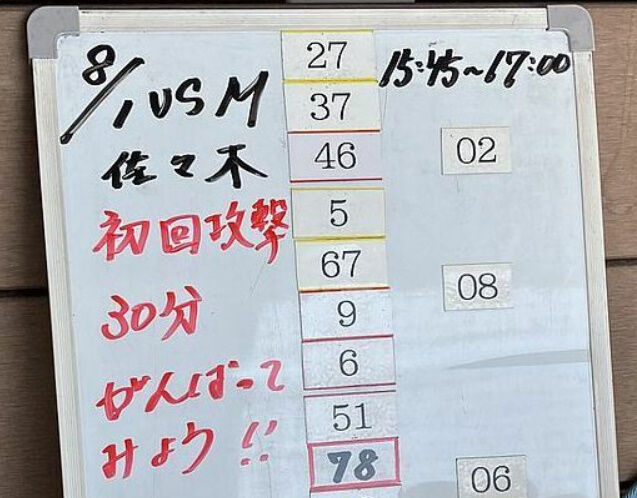 8/1 VS M
15:45~17:00
佐々木
初回攻撃
30分
がんばって
みよう!!
27
37
46
5
67
9
6
51
78
02
08
06